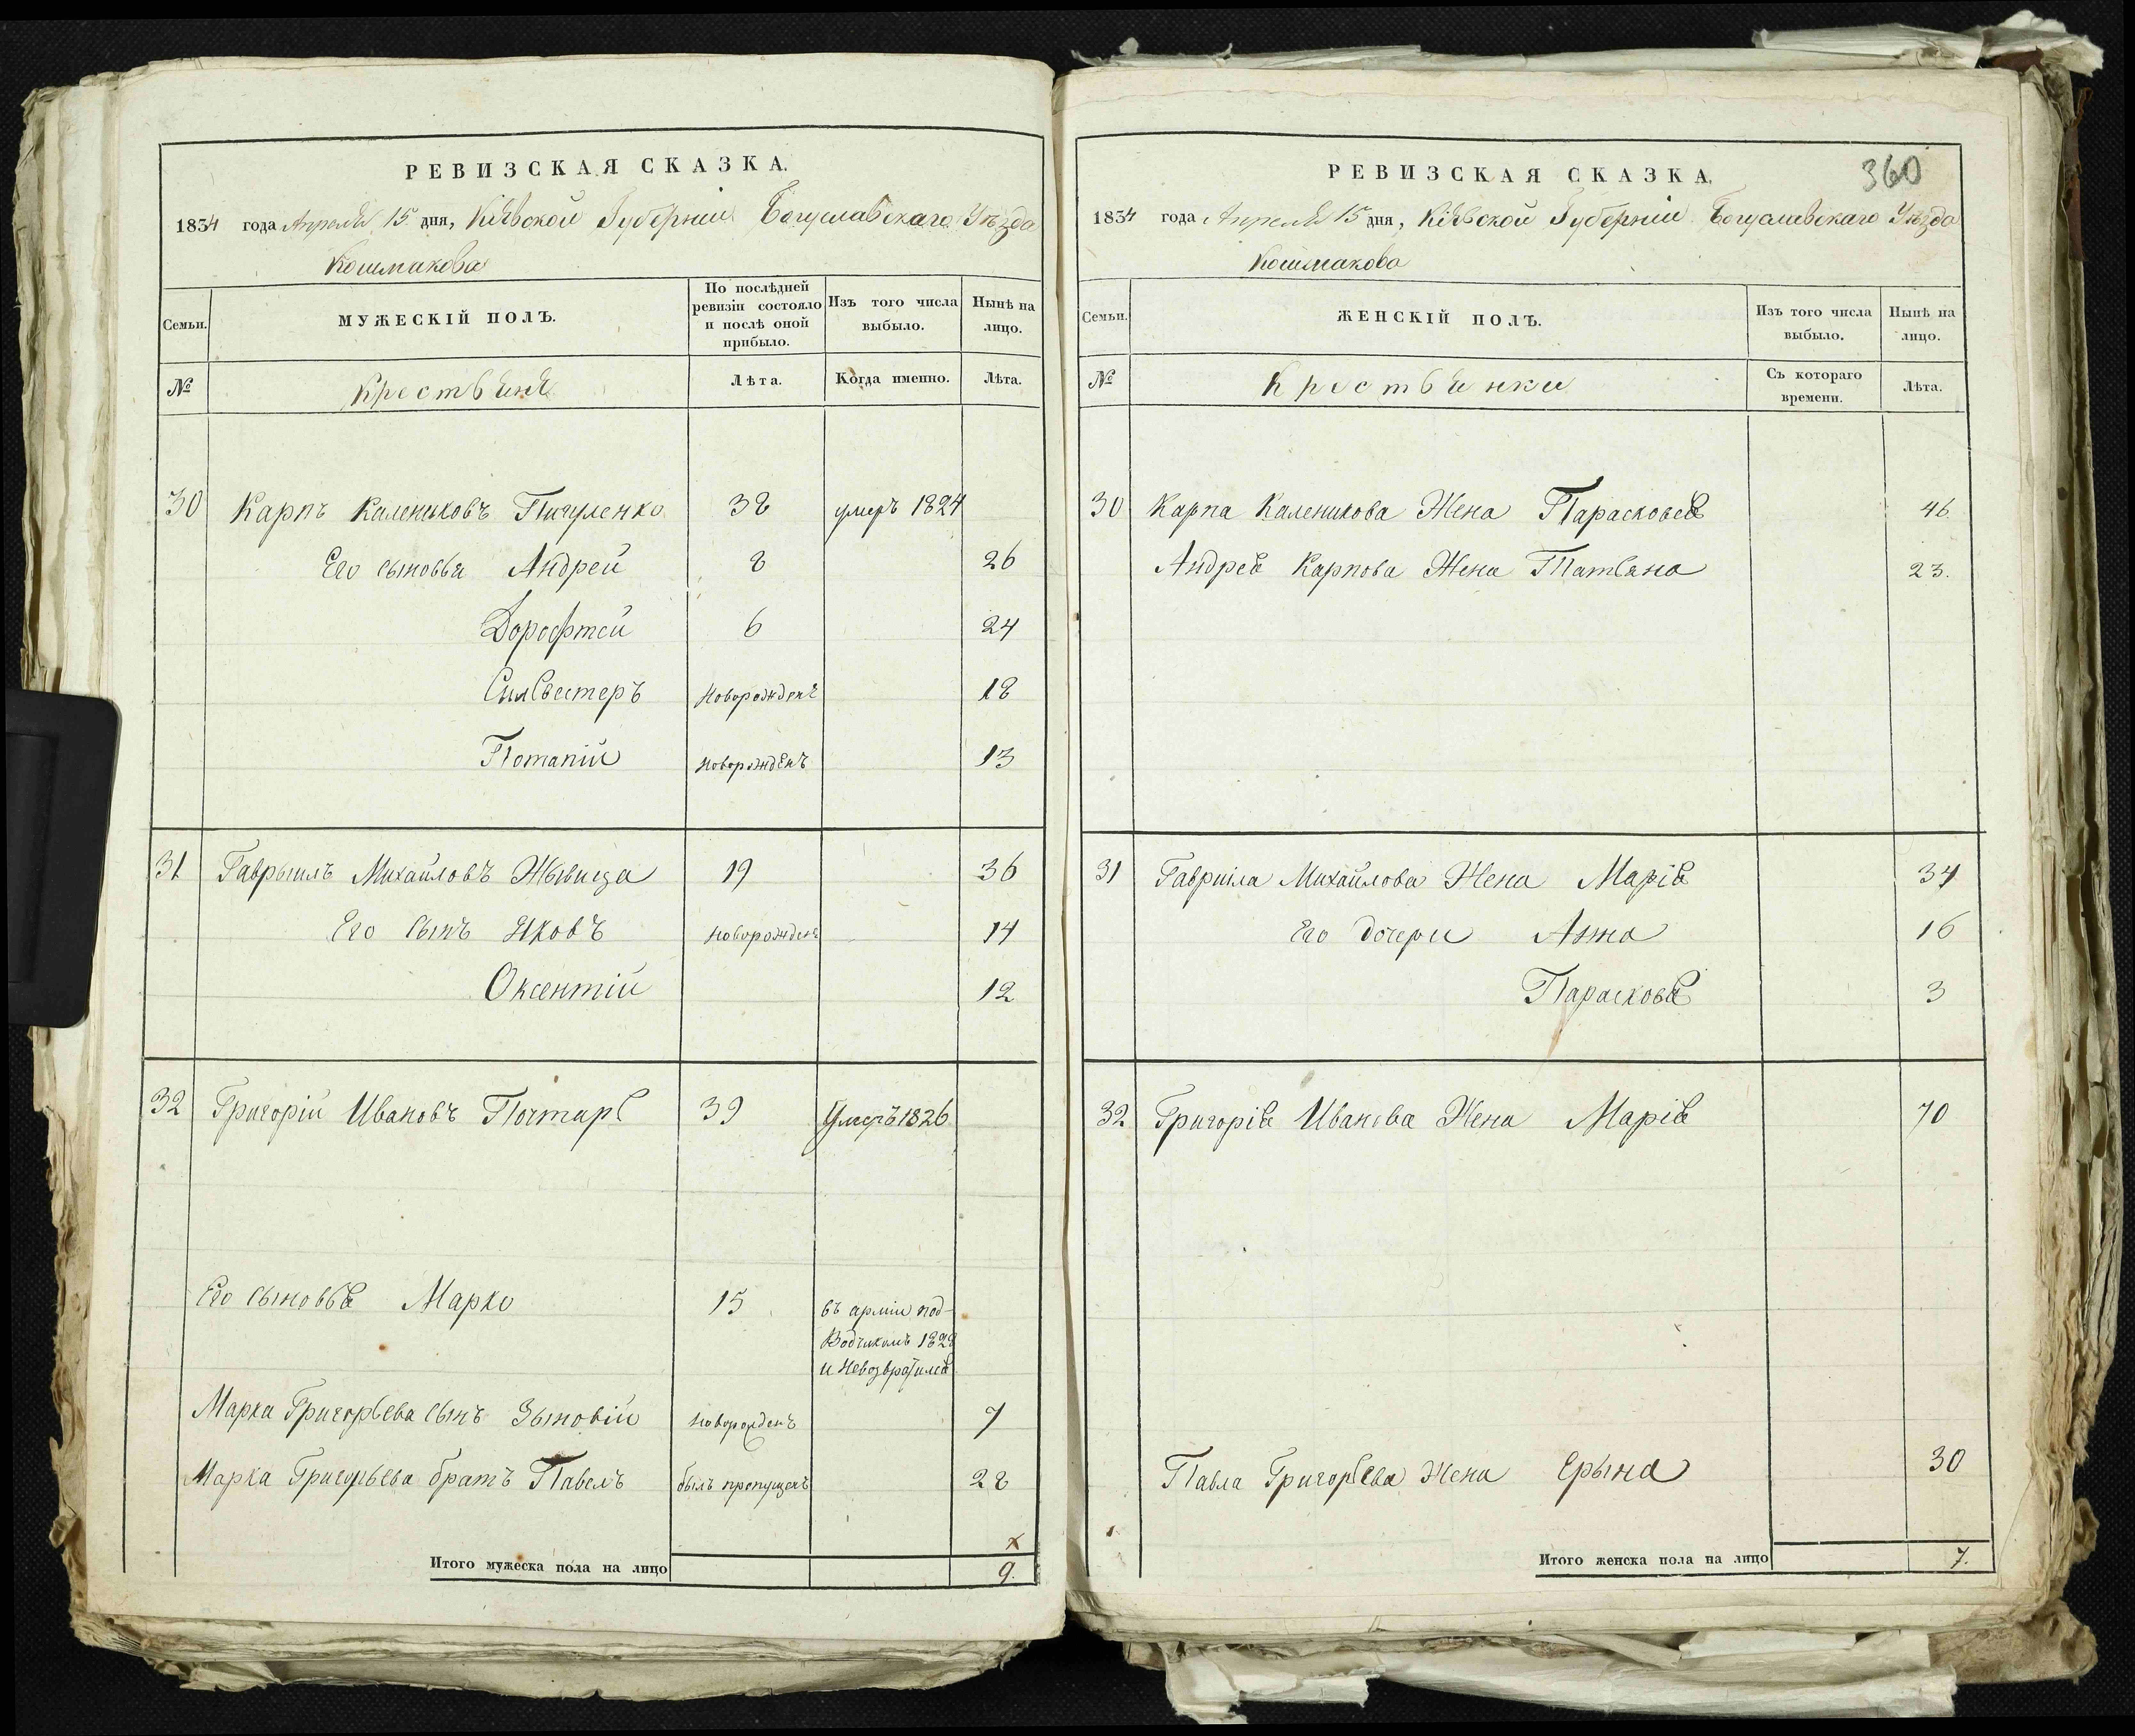 РЕВИЗСКАЯ СКАЗКА.
1834 года Апреля 15 дня, Кіевской Губерніи Богуславскаго Уѣзда
Кошмакова
Семьи.
МУЖЕСКІЙ ПОЛЪ.
По послѣдней ревизіи состояло и послѣ оной прибыло.
Изъ того числа выбыло.
Нынѣ на лицо.
№
Крестьяне
Лѣта.
Когда именно.
Лѣта.
30 Карпъ Калениковъ Пигуленко 38 умеръ 1824
Его сыновья Андрей 8 26
Дорофтей 6 24
Силвестеръ новорожденъ 18
Потапій новорожденъ 13
31 Гаврыилъ Михайловъ Жывица 19 36
Его сынъ Яковъ новорожденъ 14
Оксентій 12
32 Григорій Ивановъ Почтарь 39 Умеръ 1826
Его сыновья Марко 15 въ арміи под-
водчикомъ 1828
и невозвратился
Марка Григорьева сынъ Зыновій новорожденъ 7
Марка Григорьева братъ Павелъ былъ пропущенъ 28
х
Итого мужеска пола на лицо 9.
РЕВИЗСКАЯ СКАЗКА. 360
1834 года Апреля 15 дня, Кіевской Губерніи Богуславскаго Уѣзда
Кошмакова
Семьи.
ЖЕНСКІЙ ПОЛЪ.
Изъ того числа выбыло.
Нынѣ на лицо.
№
Крестьянки
Съ котораго времени.
Лѣта.
30 Карпа Каленикова Жена Парасковея 46
Андрея Карпова Жена Татьяна 23.
31 Гавриіла Михайлова Жена Марія 34
Его дочери Анна 16
Парасковея 3
32 Григорія Иванова Жена Марія 70
Павла Григорьева Жена Ерына 30
Итого женска пола на лицо 7.